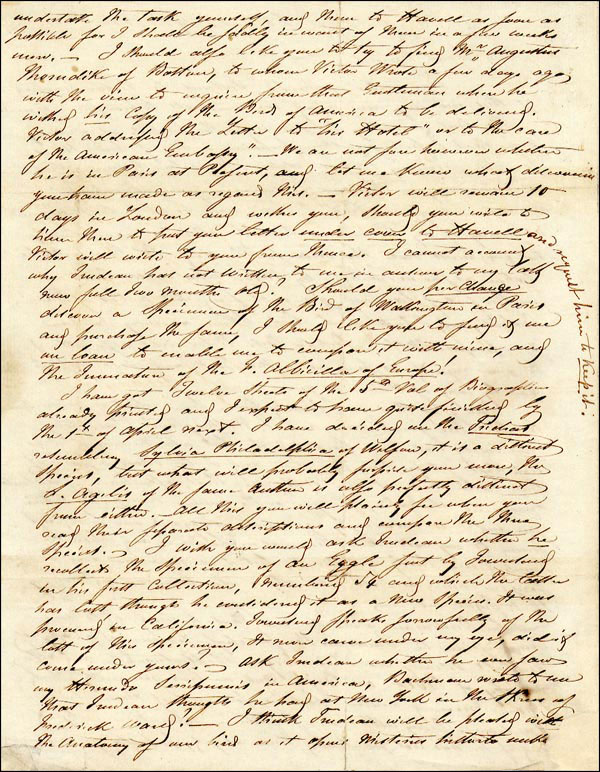 undertake the task yourself, and Them to Havell as soon as
possible for I Should be Sadly in want of Them in a few weeks
more. — I Should also like you to try to find Mr Augustus
Thorndike of Boston, to whom Victor Wrote a few days ago
with the view to inquire from that Gentleman when he
wished his Copy of The Birds of America to be delivered.
Victor addressed The Letter to "his Hotel" or to the care
of the American Embassy". — We are not sure however whether
he is in Paris at Present, and let me know what discoveries
you have made as regard this. — Victor will remain 10
days in London and wishes you, should you write to
him there to put your letter under cover to Havell and request him to keep it.
Victor will write to you from thence. I cannot account
why Trudeau has not written to me in answer to my last
now full two months old? Should you per Chance
discover a Specimen of the Bird of Washington in Paris
and purchase the same, I Should like you to send it me
on loan to enable me to compare it with mine, and
The Immature of the F. Albicilla of Europe.
I have got Twelve Sheets of the 5th Vol of Biographies
already printed and I expect to have quite finished by
the 1st of April next. I have decided on the
resembling Sylvia Philadelphia of Wilson, it is a distinct
Species, but what will probably surprise you more, the
S. Agilis of the same Author is also perfectly distinct
from either. — All this you will plainly see when you
read These separate descriptions and compare the Three
Species. — I wish you would ask Trudeau whether he
recollects the Specimen of an Eagle sent by Townsend
in his first collection, numbered 54 and which the latter
has lost though he considered it as a New Species. It was
procured in California. Townsend speaks sorrowfully of the
loss of this Specimen, It never came under my eye, did it
come under yours? — Ask Trudeau whether he ever saw
my Hirundo Serripennis in America, Bachman wrote to me
that Trudeau thought he had at New York in the Skins of
Frederick Ward? — I think Trudeau will be pleased with
the Anatomy of our birds as it opens Histories hitherto unable